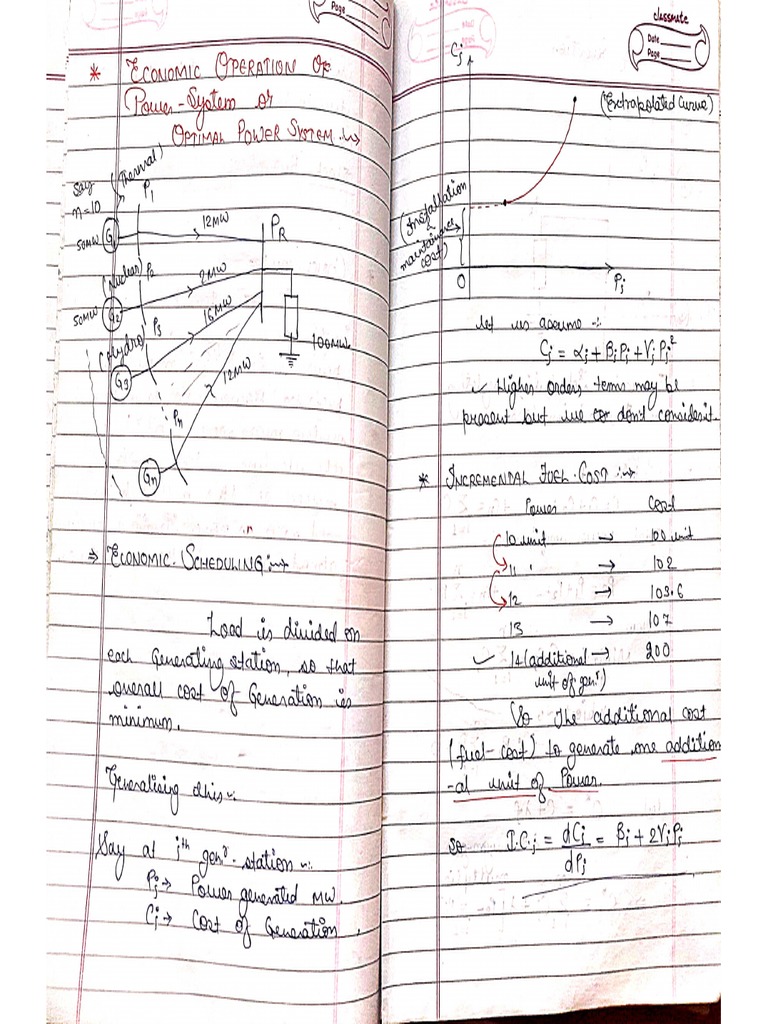 Page
* ECONOMIC OPERATION OF
Power-System or
OPTIMAL POWER SYSTEM
Say
n=10
(Thermal)
P1
12MW
PR
50MW
G1
(Nuclear)
P2
2MW
50MW
G2
(Hydro)
P3
16MW
100MW
G3
12MW
Pn
Gn
⇒ ECONOMIC SCHEDULING:
Load is divided on
each Generating station, so that
overall cost of Generation is
minimum.
Generalising this
Say at ith genr. station
Pi → Power generated MW.
Ci → Cost of Generation.
classmate
Date
Page
Ci
(Extrapolated Curve)
(Installation
&
maintainance
cost)
O
Pi
let us assume
Ci = αi + βiPi + γiPi²
✓ Higher orders terms may be
present but we don't consider it.
* INCREMENTAL FUEL COST:
Power Cost
10 unit → 100 unit
11 " → 102
12 → 103.6
13 → 107
✓ 14 (additional → 200
unit of genr)
So The additional cost
(fuel-cost) to generate one addition
-al unit of Power.
so I.C.i = dCi/dPi = βi + 2γiPi